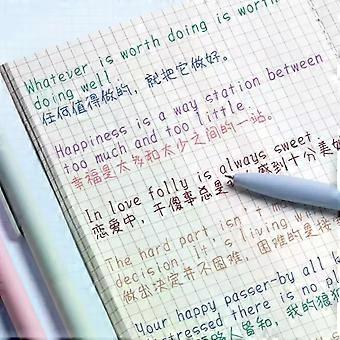 Whatever is worth doing is worth
doing well.
任何值得做的，就把它做好。
Happiness is a way station between
too much and too little.
幸福是太多和太少之间的一站。
In love folly is always sweet.
恋爱中，干傻事总是 感到十分美妙
The hard part isn't m
decision, it's living wi
做出决定并不困难，困难的是接
Your happy passer-by all k
distressed there is no pl
路人皆知，我的狼狈